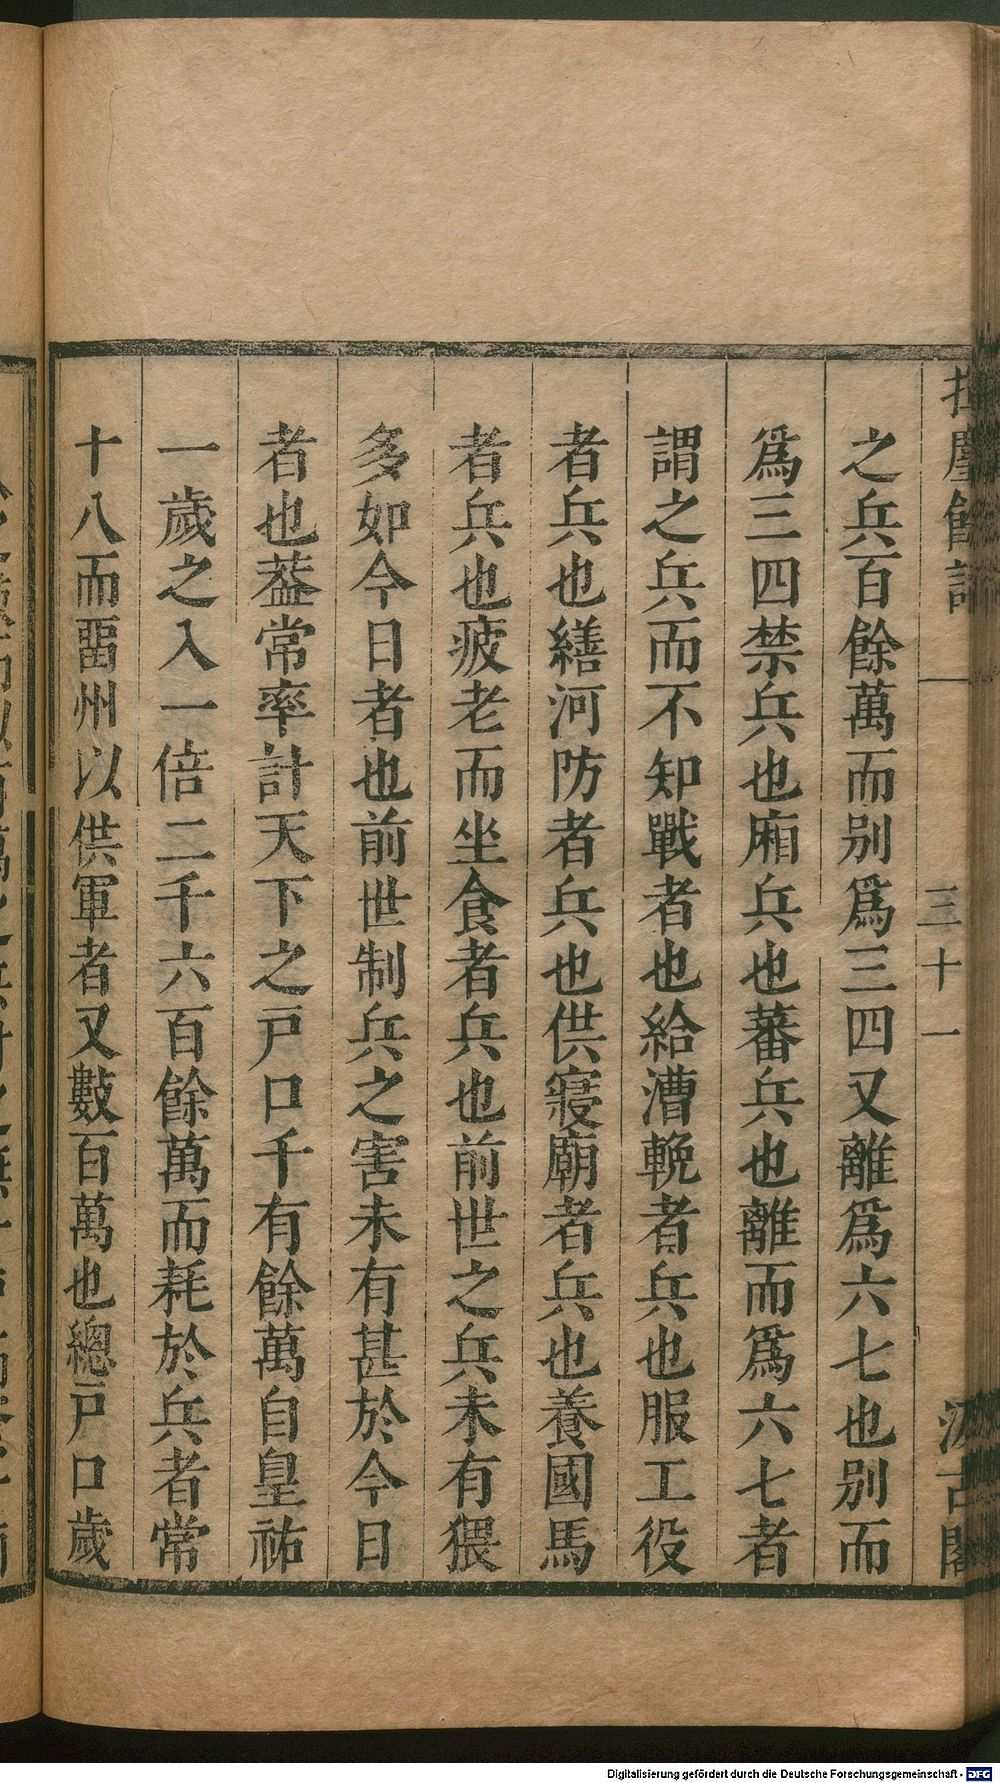 揮麈餘話
三十一
汲古閣
之兵百餘萬而别爲三四又離爲六七也别而
爲三四禁兵也廂兵也蕃兵也離而爲六七者
謂之兵而不知戰者也給漕輓者兵也服工役
者兵也繕河防者兵也供寢廟者兵也養國馬
者兵也疲老而坐食者兵也前世之兵未有猥
多如今日者也前世制兵之害未有甚於今日
者也葢常率計天下之戸口千有餘萬自皇祐
一歲之入一倍二千六百餘萬而耗於兵者常
十八而畱州以供軍者又數百萬也總戸口歲
Digitalisierung gefördert durch die Deutsche Forschungsgemeinschaft - DFG